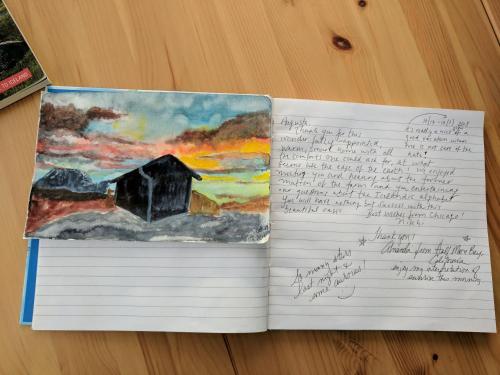 TO ICELAND
Augusta,
Thank you for this
wonderfully appointed,
warm, smart home with all
the comforts one could ask for, at what
seems like the edge of the earth! We enjoyed
meeting you and hearing about the fortune
matters of the farm (and you entertaining
our questions about the Icelandic alphabet
You will have nothing but success with this
beautiful oasis. Best wishes from Chicago!
it's really a nice &
good vacation
this is not sure of the
Thank you!
Amanda from Half Moon Bay,
California
enjoy my interpretation of
sunrise this morning
So many stars
last night &
some auroras!